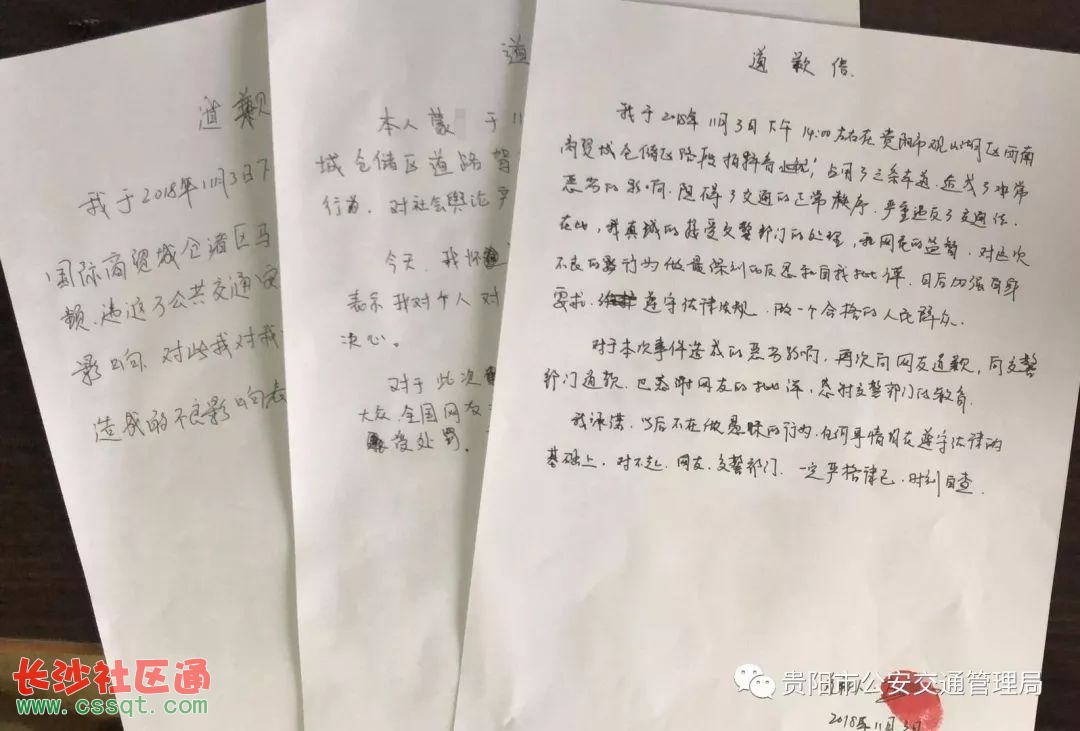 道歉
我于2018年11月3日下
国际商贸城仓诸区马
频.违返了公共交通安
影响.对此我对我
造成的不良影响表
道
本人蒙 于11
城仓储区道路驾
行为.对社会舆论严
今天.我怀
表示我对个人对
决心。
对于此次
大众.全国网友
受处罚.
道歉信.
我于2018年11月3日下午14:00左右在贵阳市观山湖区西南
商贸城仓储区路段拍抖音视频;占用了三条车道.造成了非常
恶劣的影响.阻碍了交通的正常秩序.严重违反了交通法.
在此,我真诚的接受交警部门的处理,和网友的监督.对这次
不良的行为做最深刻的反思和自我批评.日后加强自身
要求.遵守法律法规.做一个合格的人民群众.
对于本次事件造成的恶劣影响,再次向网友道歉,向交警
部门道歉.也感谢网友的批评,感谢交警部门的教育.
我承诺.以后不在做愚昧的行为.任何事情都在遵守法律的
基础上.对不起.网友.交警部门.一定严格律己.时刻自查.
道歉人
2018年11月3日
长沙社区通
www.cssqt.com
贵阳市公安交通管理局